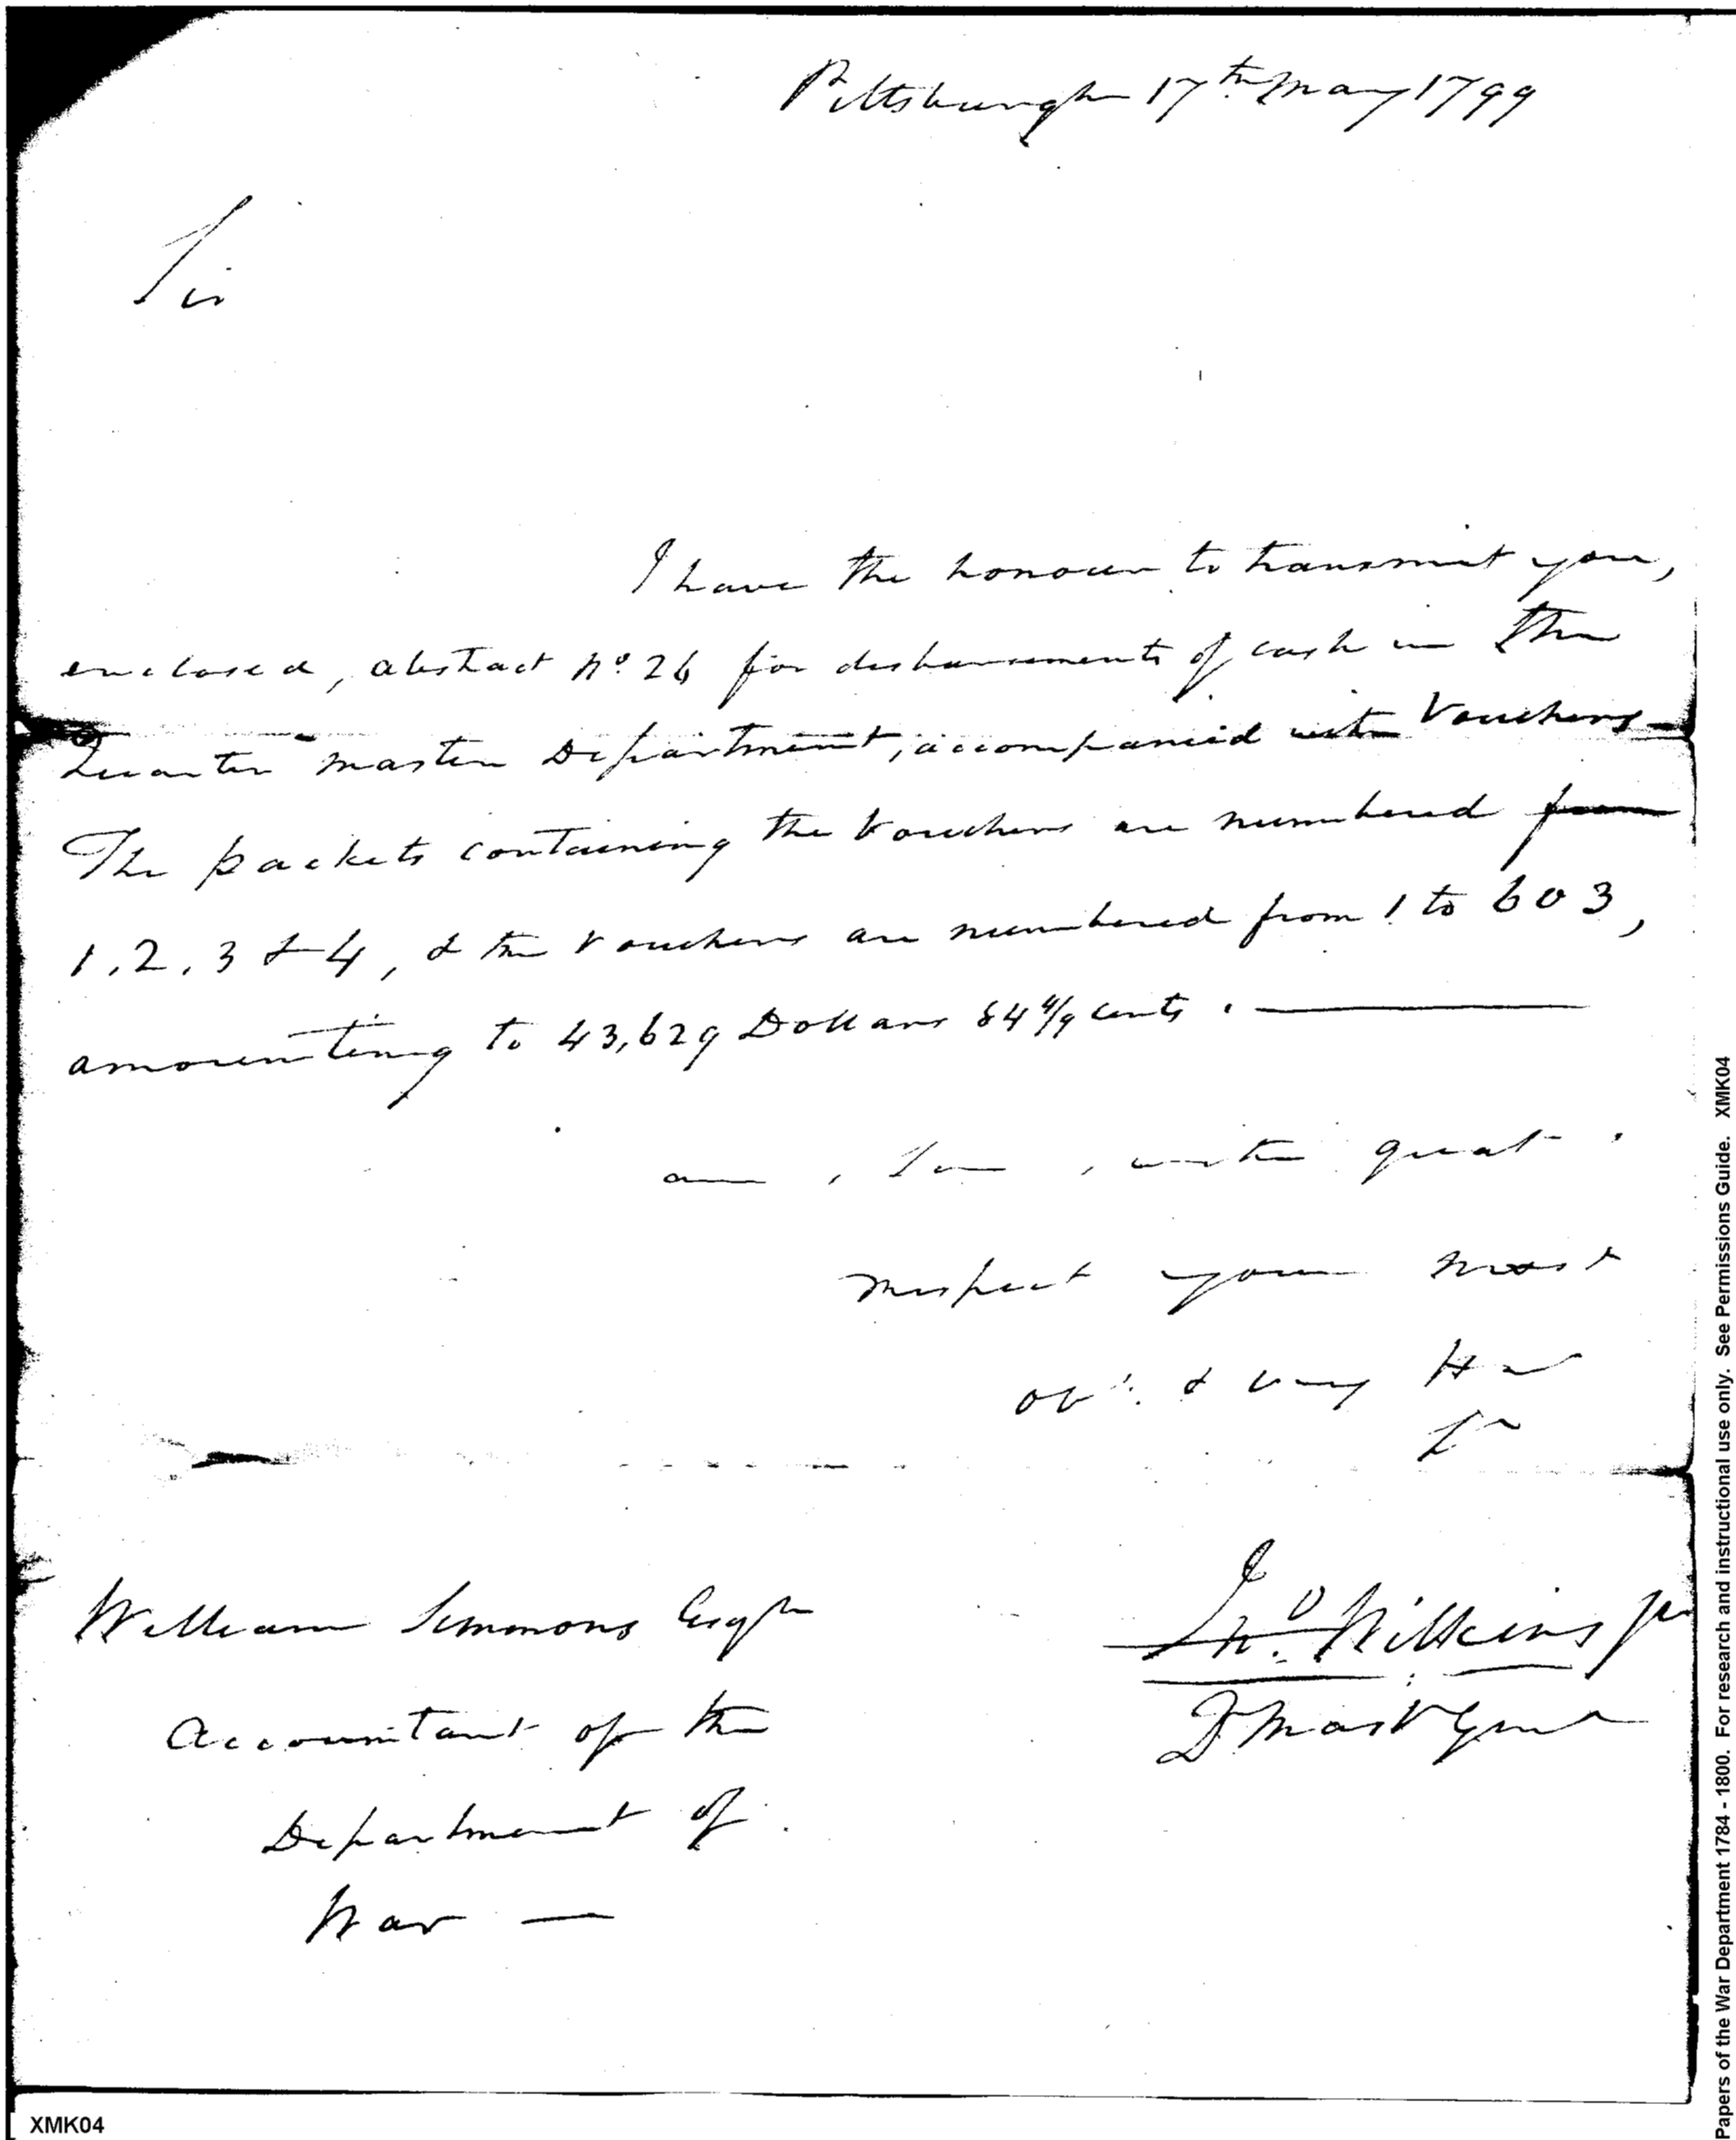 Pittsburgh 17th May 1799
Sir
I have the honour to transmit you,
enclosed, abstract No. 26 for disbursements of cash in the
Quarter Master Department, accompanied with Vouchers
The packets containing the Vouchers are numbered from
1, 2, 3 & 4, & the Vouchers are numbered from 1 to 603,
amounting to 43,629 Dollars 84 4/9 cents.
am, Sir, with great
respect your most
obt. & very Hu
St
William Simmons Esqr
Accountant of the
Department of
War —
Jno. Wilkins Jr
Q Mastr Genl
XMK04
Papers of the War Department 1784 - 1800. For research and instructional use only. See Permissions Guide. XMK04